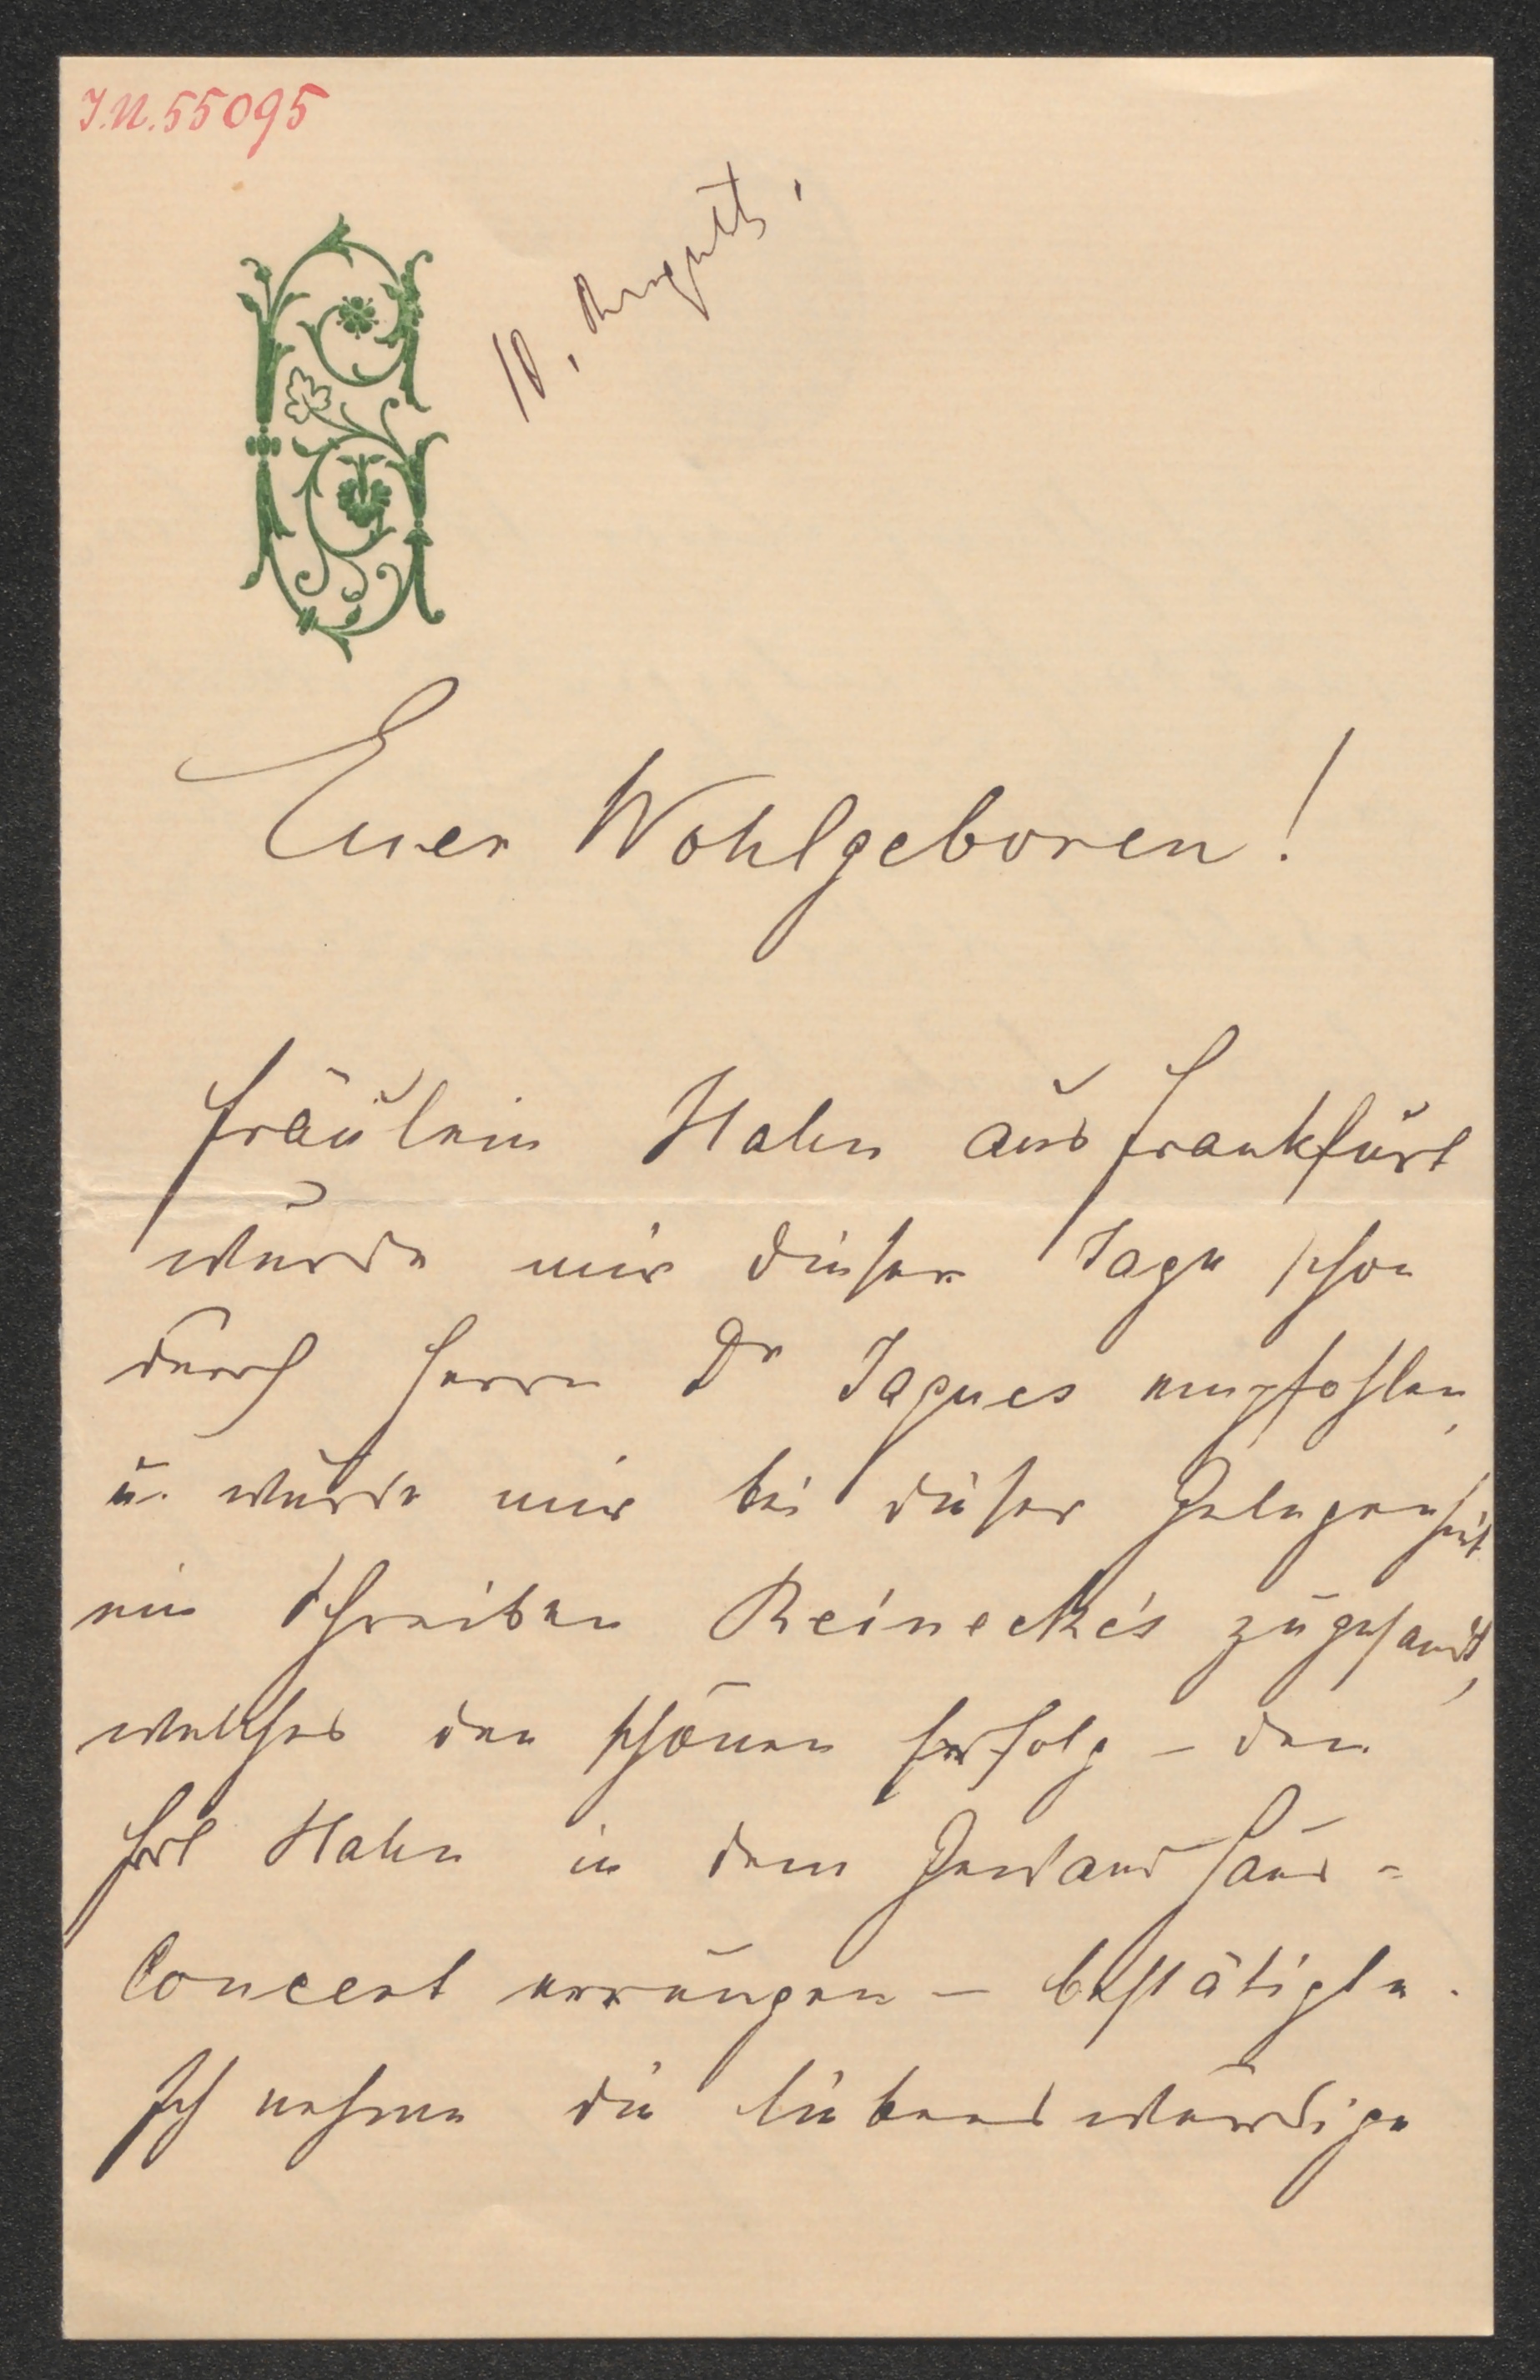 I.N. 55095
10, August.
Euer Wohlgeboren!
Fräulein Hahn aus Frankfurt
wurde mir dieser Tage schon
durch Herrn Dr Jaques empfohlen,
u. wurde mir bei dieser Gelegenheit
ein Schreiben Reinecke's zugesandt,
welches den schönen Erfolg – den
Frl Hahn in dem Gewandhaus-
Concert errungen – bestätigte.
Ich nehme die liebenswürdige